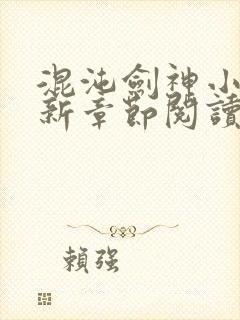 混沌劍神小
新章節閱讀
賴強